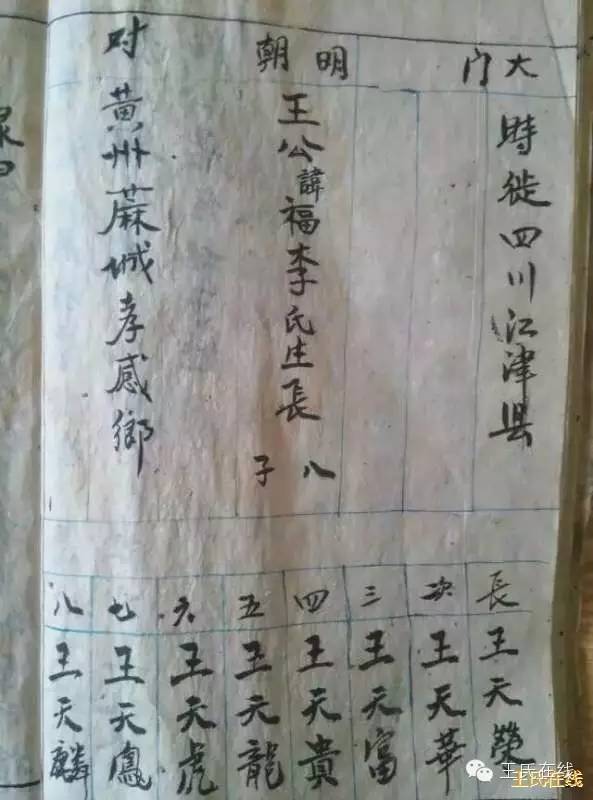 大门
時徙四川江津县
明朝
王公諱福李氏生長
八子
对
黄州蔴城孝感鄉
長王天榮
次王天華
三王天富
四王天貴
五王天龍
六王天虎
七王天鳳
八王天麟
王氏在线
王氏在线